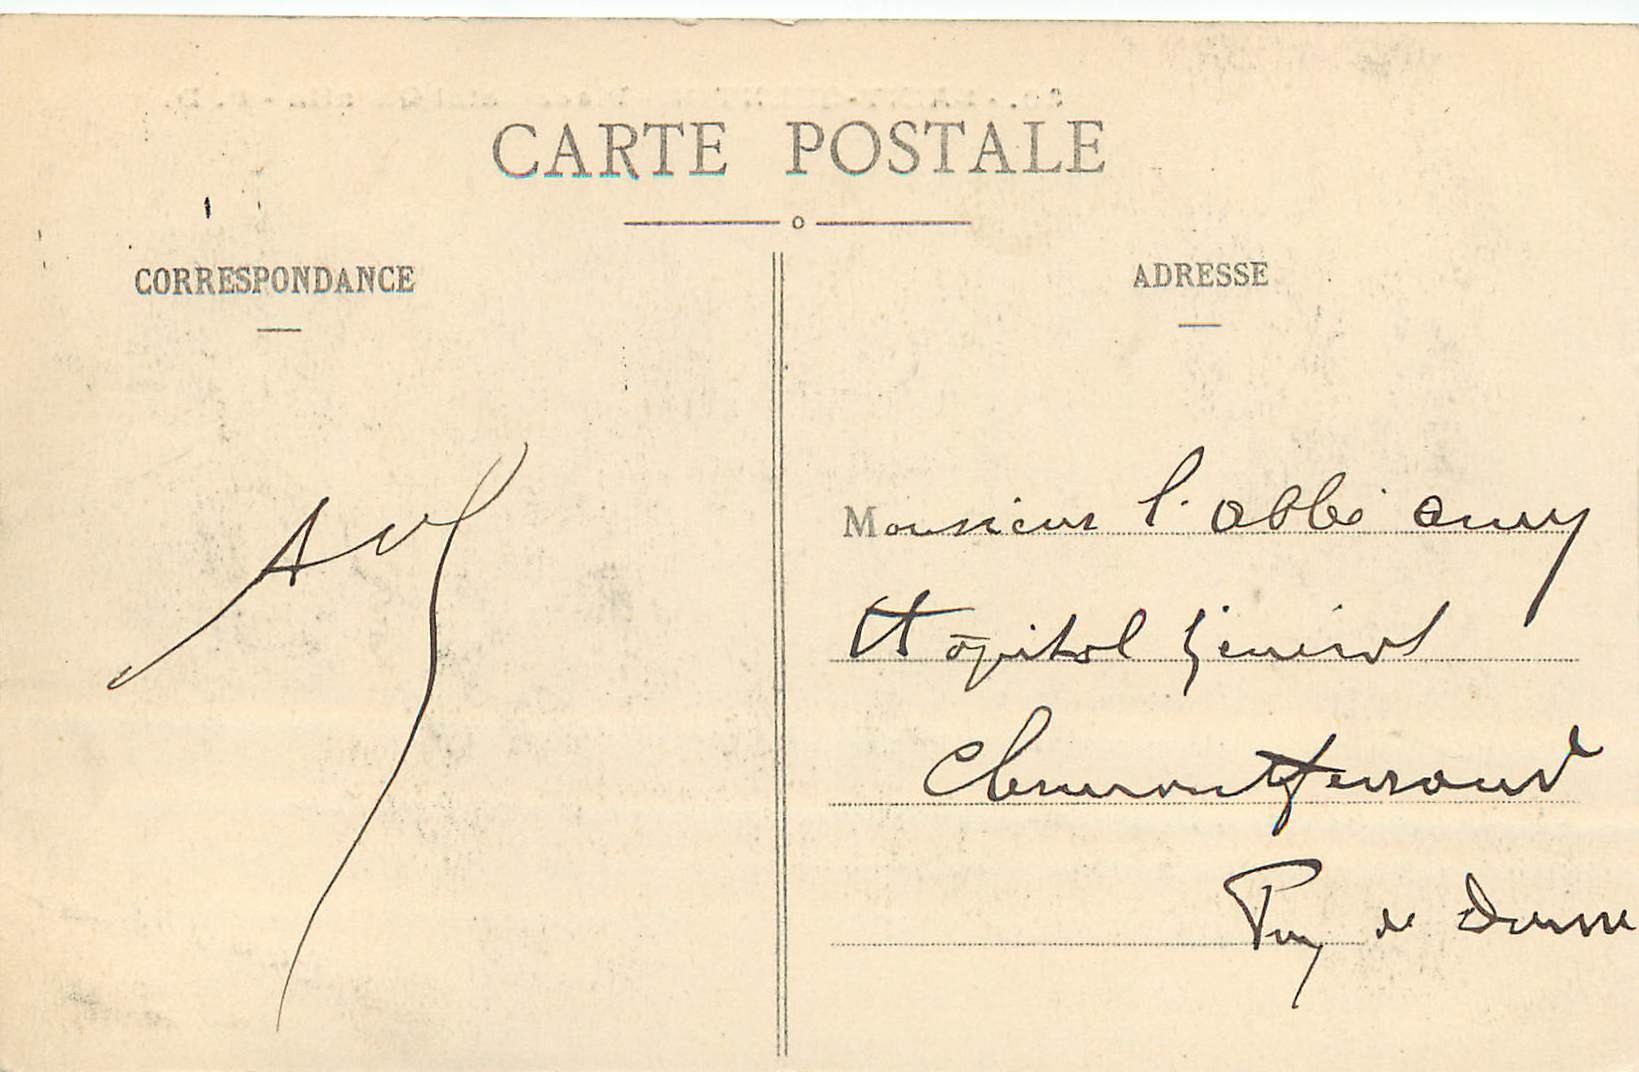 CARTE POSTALE
CORRESPONDANCE
ADRESSE
Monsieur l'abbé
Hôpital Général
Clermontferrand
Puy de Dome